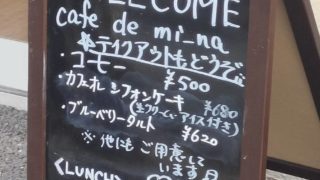 WELCOME
cafe de mi-na
テイクアウトもどうぞ
・コーヒー ¥500
・カフェオレシフォンケーキ ¥680
(生クリーム・アイス付き)
・ブルーベリータルト ¥620
※他にもご用意して
います
<LUNCH>